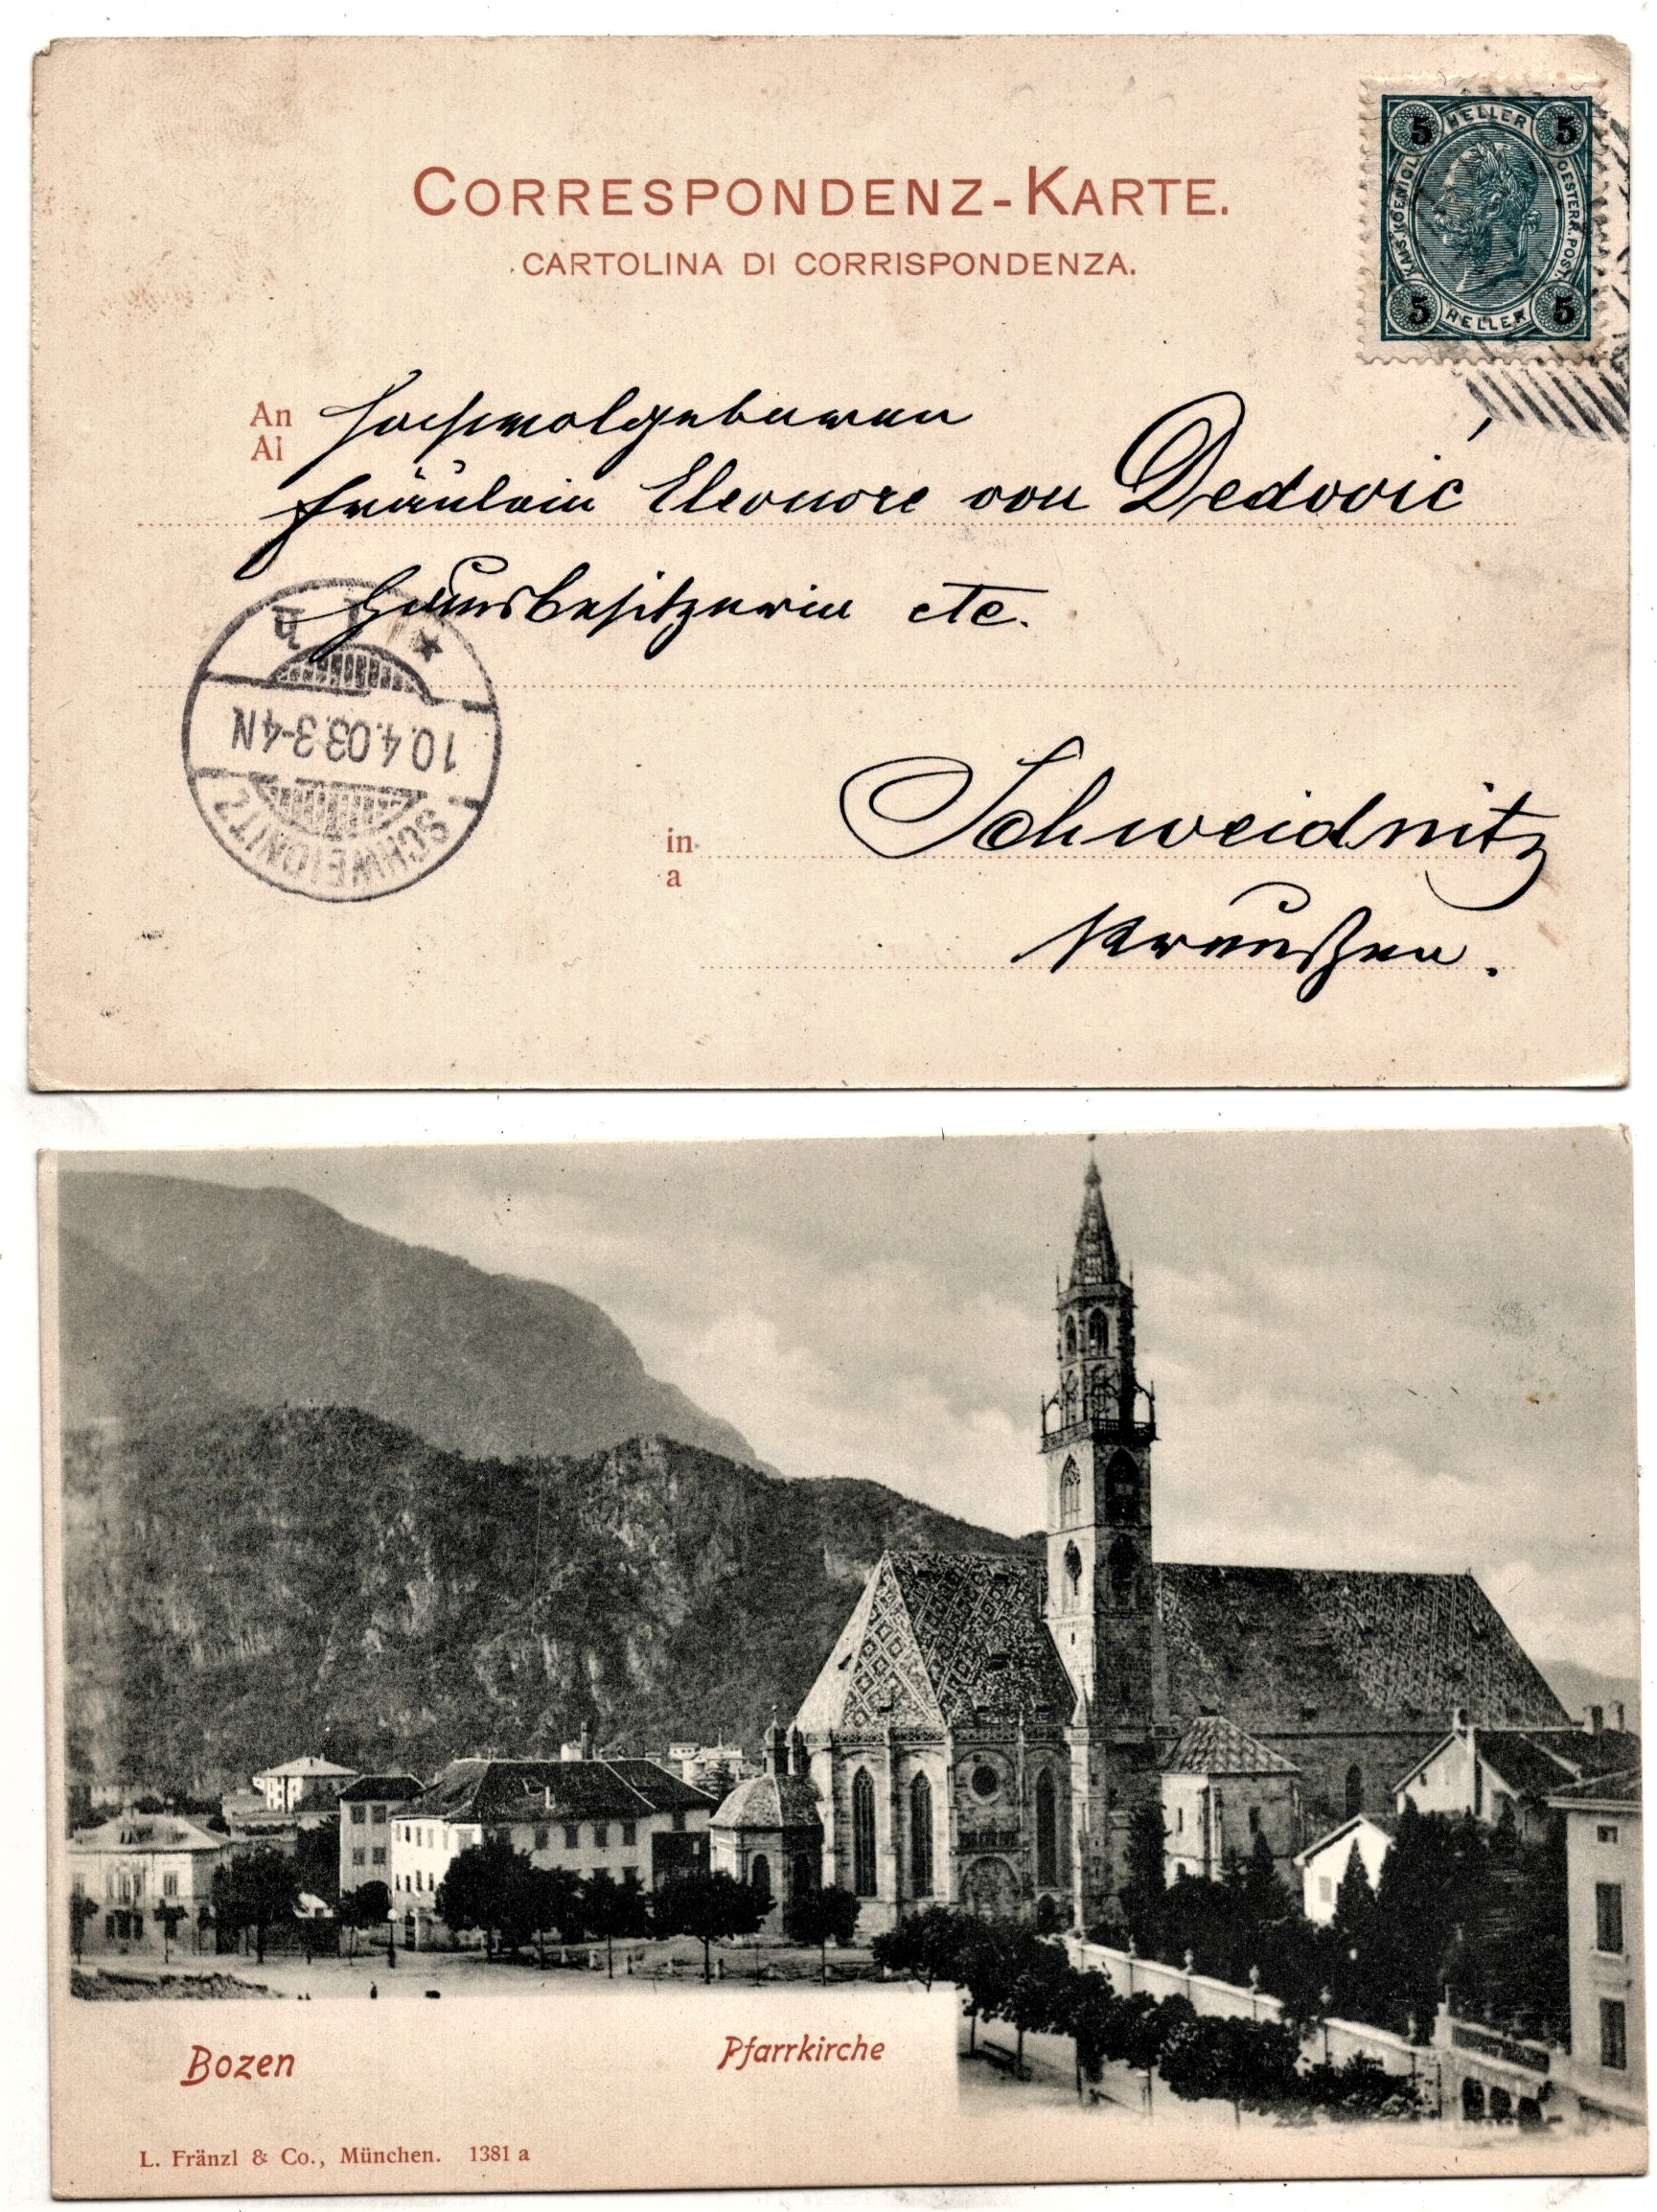 CORRESPONDENZ-KARTE.
CARTOLINA DI CORRISPONDENZA.
5 HELLER 5
KAIS. KOENIGL. OESTERR. POST.
5 HELLER 5
An Hochwolgeboren
Al
Fräulein Eleonore von Dedović
Hausbesitzerin etc.
SCHWEIDNITZ
10.4.03.3-4N
in Schweidnitz
a
Preußen.
Bozen
Pfarrkirche
L. Fränzl & Co., München. 1381 a